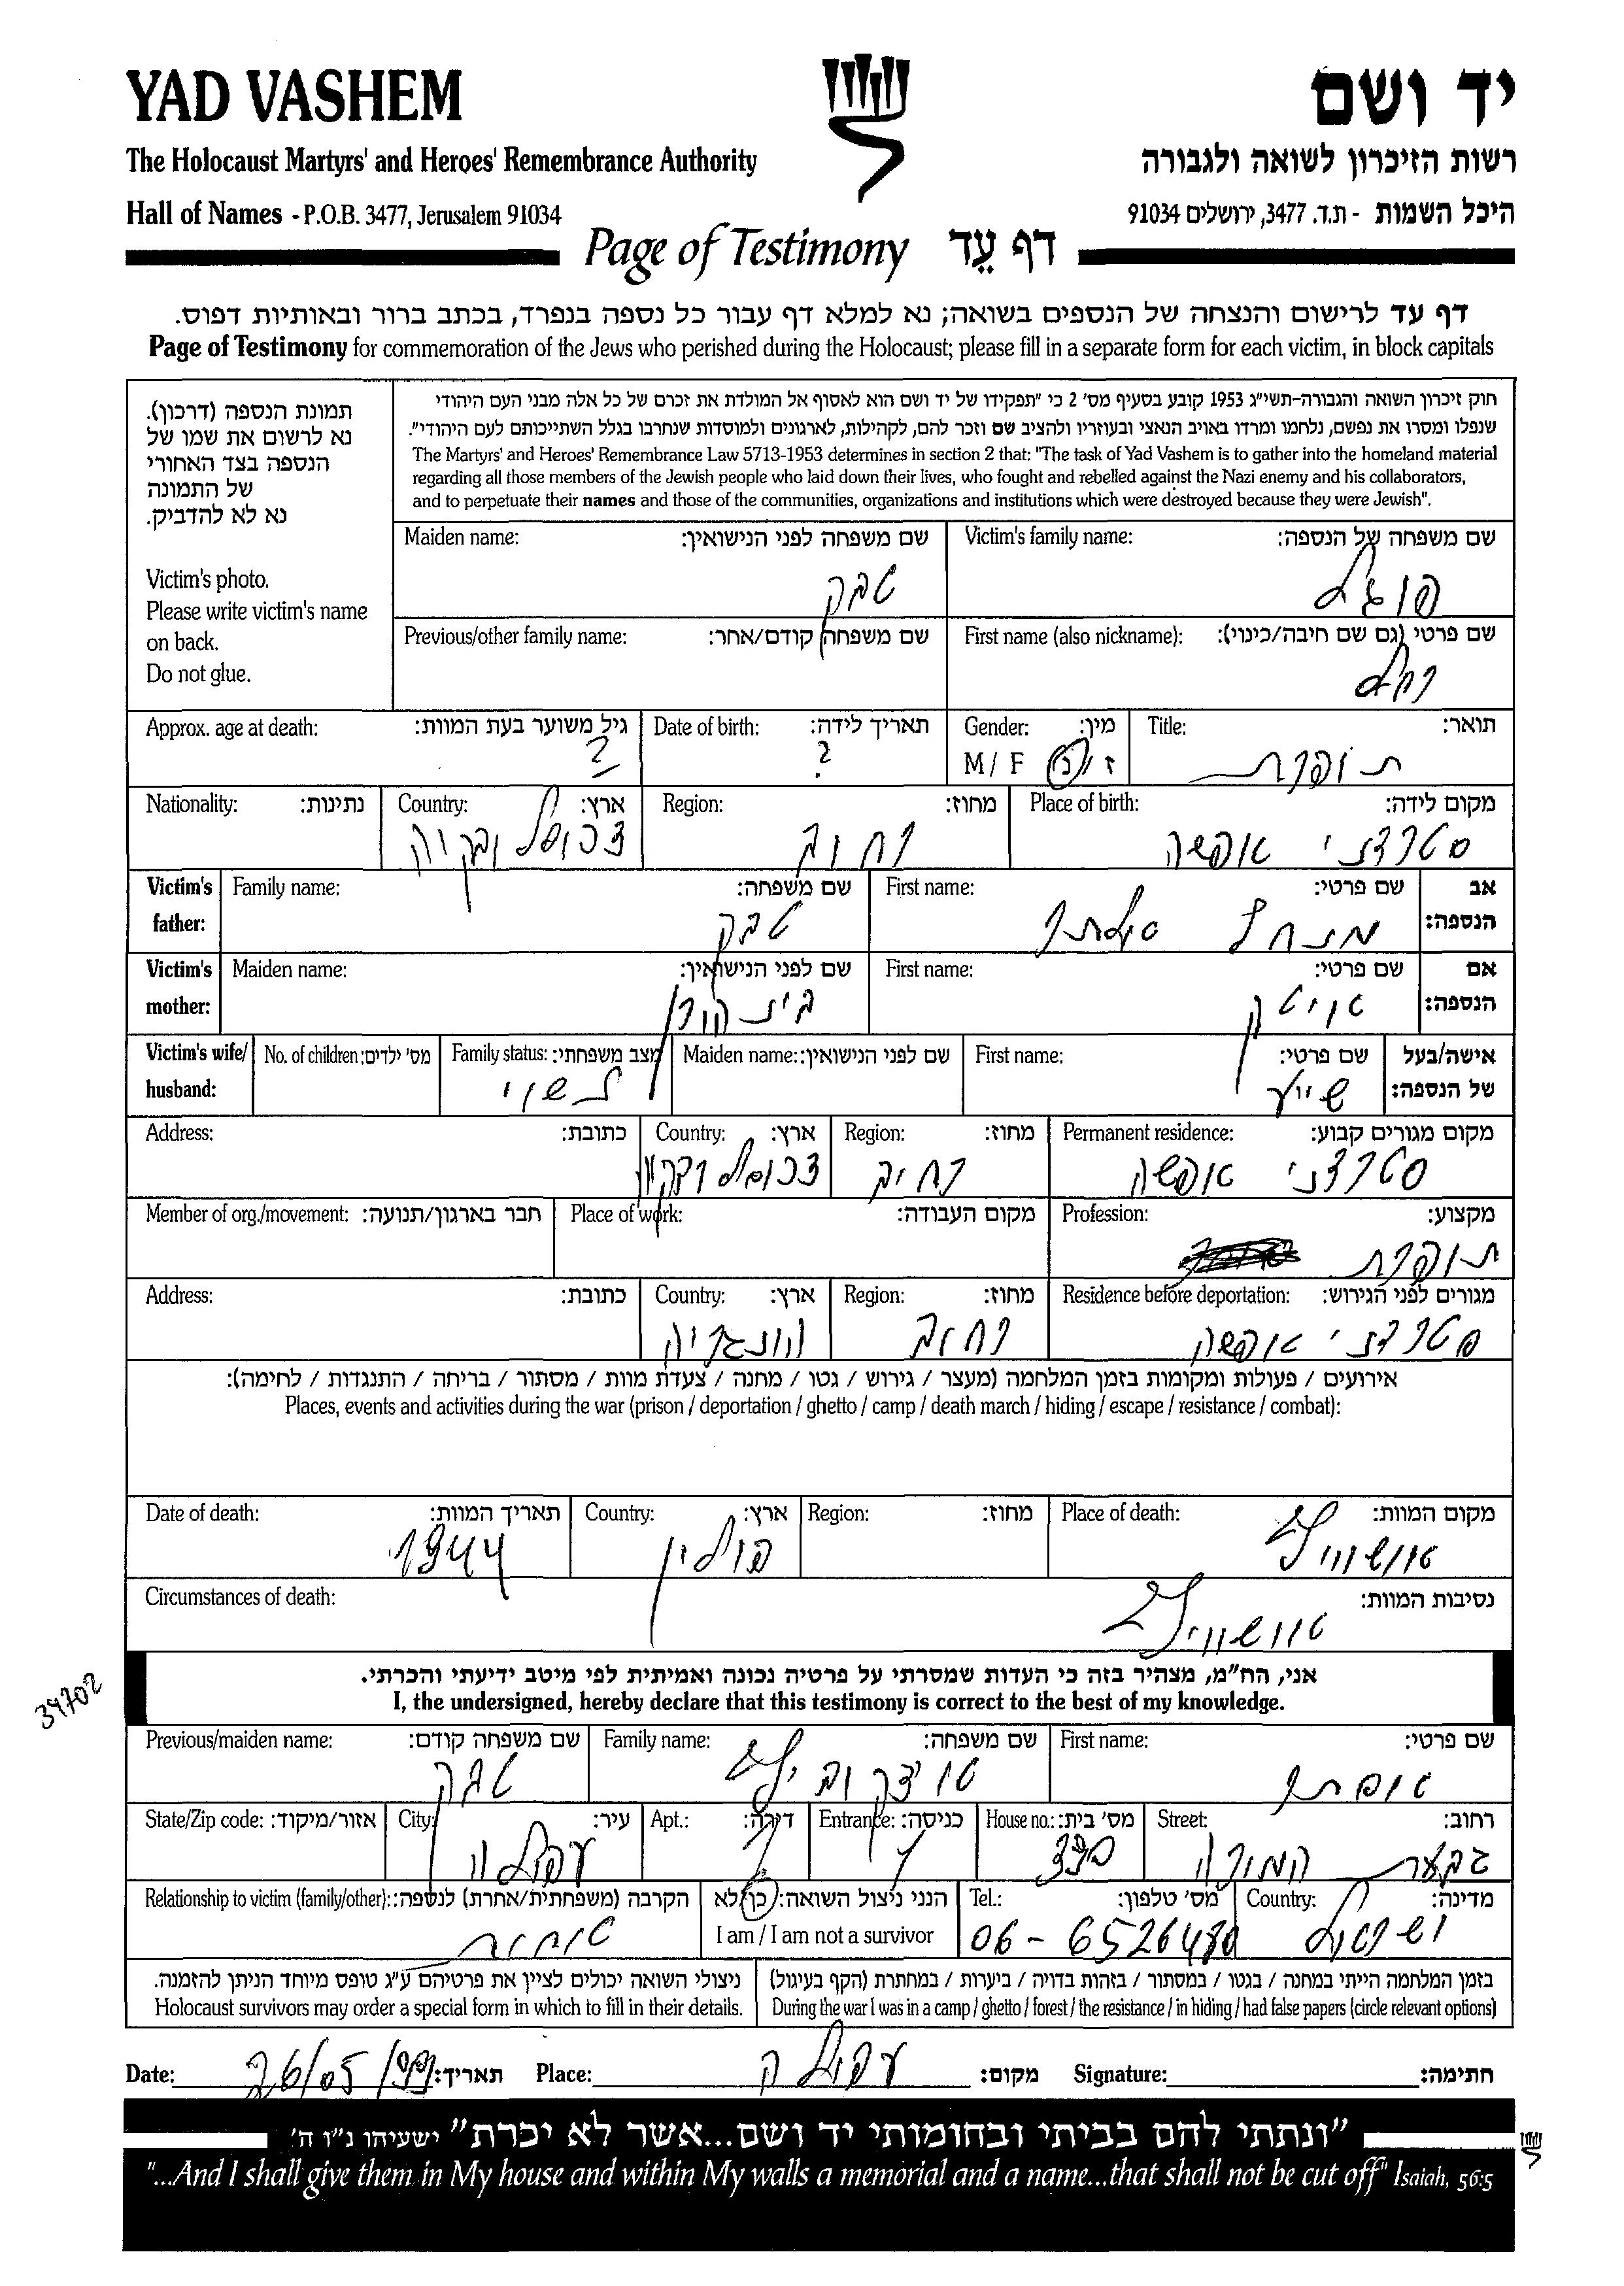 YAD VASHEM
יד ושם
The Holocaust Martyrs' and Heroes' Remembrance Authority
רשות הזיכרון לשואה ולגבורה
Hall of Names - P.O.B. 3477, Jerusalem 91034
היכל השמות - ת.ד. 3477, ירושלים 91034
Page of Testimony דף עֵד
דף עד לרישום והנצחה של הנספים בשואה; נא למלא דף עבור כל נספה בנפרד, בכתב ברור ובאותיות דפוס.
Page of Testimony for commemoration of the Jews who perished during the Holocaust; please fill in a separate form for each victim, in block capitals
תמונת הנספה (דרכון).
נא לרשום את שמו של
הנספה בצד האחורי
של התמונה
נא לא להדביק.
Victim's photo.
Please write victim's name
on back.
Do not glue.
חוק זיכרון השואה והגבורה-תשי"ג 1953 קובע בסעיף מס' 2 כי "תפקידו של יד ושם הוא לאסוף אל המולדת את זכרם של כל אלה מבני העם היהודי
שנפלו ומסרו את נפשם, נלחמו ומרדו באויב הנאצי ובעוזריו ולהציב שם וזכר להם, לקהילות, לארגונים ולמוסדות שנחרבו בגלל השתייכותם לעם היהודי".
The Martyrs' and Heroes' Remembrance Law 5713-1953 determines in section 2 that: "The task of Yad Vashem is to gather into the homeland material
regarding all those members of the Jewish people who laid down their lives, who fought and rebelled against the Nazi enemy and his collaborators,
and to perpetuate their names and those of the communities, organizations and institutions which were destroyed because they were Jewish".
שם משפחה של הנספה: Victim's family name:
שם משפחה לפני הנישואין: Maiden name:
טבק
שם פרטי (גם שם חיבה/כינוי): First name (also nickname):
שם משפחה קודם/אחר: Previous/other family name:
רחל
תואר: Title: מין: Gender: תאריך לידה: Date of birth: גיל משוער בעת המוות: Approx. age at death:
תופרת ז / נ M / F ? ?
מקום לידה: Place of birth: מחוז: Region: ארץ: Country: נתינות: Nationality:
סטרדני אפשה רחוב צכוסלובקיה
אב הנספה: שם פרטי: First name: שם משפחה: Family name: Victim's father:
טבק
אם הנספה: שם פרטי: First name: שם לפני הנישואין: Maiden name: Victim's mother:
אישה/בעל של הנספה: שם פרטי: First name: שם לפני הנישואין: Maiden name: מצב משפחתי: Family status: מס' ילדים: No. of children: Victim's wife/ husband:
נשוי
מקום מגורים קבוע: Permanent residence: מחוז: Region: ארץ: Country: כתובת: Address:
סטרדני אפשה רחוב
מקצוע: Profession: מקום העבודה: Place of work: חבר בארגון/תנועה: Member of org./movement:
תופרת
מגורים לפני הגירוש: Residence before deportation: מחוז: Region: ארץ: Country: כתובת: Address:
סטרדני אפשה רחוב הונגריה
אירועים / פעולות ומקומות בזמן המלחמה (מעצר / גירוש / גטו / מחנה / צעדת מוות / מסתור / בריחה / התנגדות / לחימה):
Places, events and activities during the war (prison / deportation / ghetto / camp / death march / hiding / escape / resistance / combat):
מקום המוות: Place of death: מחוז: Region: ארץ: Country: תאריך המוות: Date of death:
אושוויץ פולין 1944
נסיבות המוות: Circumstances of death:
אוושוויץ
אני, הח"מ, מצהיר בזה כי העדות שמסרתי על פרטיה נכונה ואמיתית לפי מיטב ידיעתי והכרתי.
I, the undersigned, hereby declare that this testimony is correct to the best of my knowledge.
39702
שם פרטי: First name: שם משפחה: Family name: שם משפחה קודם: Previous/maiden name:
איצקוביץ טבק
רחוב: Street: מס' בית: House no.: כניסה: Entrance: דירה: Apt.: עיר: City: אזור/מיקוד: State/Zip code:
גבעת המורה עפולה
מדינה: Country: מס' טלפון: Tel.: הנני ניצול השואה: כן/לא I am / I am not a survivor הקרבה (משפחתית/אחרת) לנספה: Relationship to victim (family/other):
ישראל 06 - 6526480 אחות
בזמן המלחמה הייתי במחנה / בגטו / במסתור / בזהות בדויה / ביערות / במחתרת (הקף בעיגול)
During the war I was in a camp / ghetto / forest / the resistance / in hiding / had false papers (circle relevant options)
ניצולי השואה יכולים לציין את פרטיהם ע"ג טופס מיוחד הניתן להזמנה.
Holocaust survivors may order a special form in which to fill in their details.
Date: 26/05/99 תאריך: Place: עפולה מקום: Signature: חתימה:
"ונתתי להם בביתי ובחומותי יד ושם...אשר לא יכרת" ישעיהו נ"ו ה'
"...And I shall give them in My house and within My walls a memorial and a name...that shall not be cut off" Isaiah, 56:5